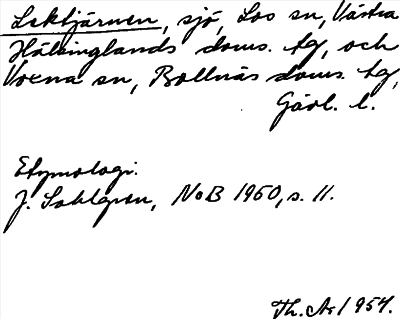 Lektjärnen, sjö, Los sn, Västra
Hälsinglands doms. tg, och
Voxna sn, Bollnäs doms. tg,
Gävl. l.
Etymologi:
J. Sahlgren, NoB 1950, s. 11.
Th. A. 1954.